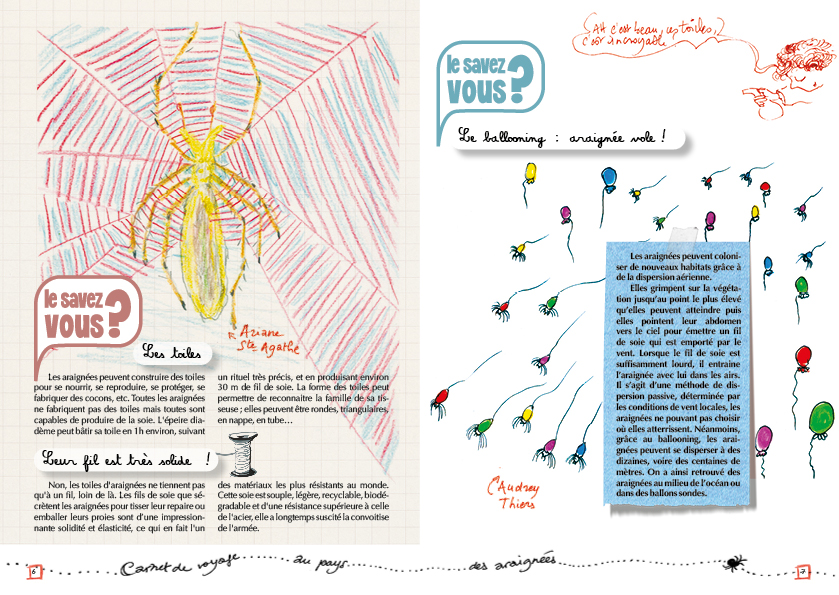 le savez
vous ?
Les toiles
Ariane
Ste Agathe
Les araignées peuvent construire des toiles
pour se nourrir, se reproduire, se protéger, se
fabriquer des cocons, etc. Toutes les araignées
ne fabriquent pas des toiles mais toutes sont
capables de produire de la soie. L'épeire dia-
dème peut bâtir sa toile en 1h environ, suivant
un rituel très précis, et en produisant environ
30 m de fil de soie. La forme des toiles peut
permettre de reconnaitre la famille de sa tis-
seuse ; elles peuvent être rondes, triangulaires,
en nappe, en tube…
Leur fil est très solide !
Non, les toiles d'araignées ne tiennent pas
qu'à un fil, loin de là. Les fils de soie que sé-
crètent les araignées pour tisser leur repaire ou
emballer leurs proies sont d'une impression-
nante solidité et élasticité, ce qui en fait l'un
des matériaux les plus résistants au monde.
Cette soie est souple, légère, recyclable, biodé-
gradable et d'une résistance supérieure à celle
de l'acier, elle a longtemps suscité la convoitise
de l'armée.
AH c'est beau, ces toiles,
c'est incroyable
le savez
vous ?
Le ballooning : araignée vole !
Les araignées peuvent coloni-
ser de nouveaux habitats grâce à
de la dispersion aérienne.
Elles grimpent sur la végéta-
tion jusqu'au point le plus élevé
qu'elles peuvent atteindre puis
elles pointent leur abdomen
vers le ciel pour émettre un fil
de soie qui est emporté par le
vent. Lorsque le fil de soie est
suffisamment lourd, il entraine
l'araignée avec lui dans les airs.
Il s'agit d'une méthode de dis-
persion passive, déterminée par
les conditions de vent locales, les
araignées ne pouvant pas choisir
où elles atterrissent. Néanmoins,
grâce au ballooning, les arai-
gnées peuvent se disperser à des
dizaines, voire des centaines de
mètres. On a ainsi retrouvé des
araignées au milieu de l'océan ou
dans des ballons sondes.
Audrey
Thiers
6
Carnet de voyage au pays des araignées
7